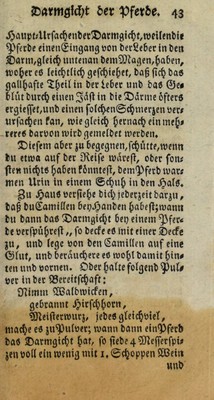 Darmgicht der Pferde. 43
Haupt-Ursachender Darmgicht, weilen die
Pferde einen Eingang von der Leber in den
Darm, gleich unten an dem Magen, haben,
woher es leichtlich geschiehet, daß sich das
gallhafte Theil in der Leber und das Ge-
blüt durch einen Jäst in die Därme öfters
ergiesset, und einen solchen Schmerzen ver-
ursachen kan, wie gleich hernach ein meh-
reres darvon wird gemeldet werden.
Diesem aber zu begegnen, schütte, wenn
du etwa auf der Reise wärest, oder son-
sten nichts haben könntest, dem Pferd war-
men Urin in einem Schuh in den Hals.
Zu Haus verstehe dich jederzeit darzu,
daß du Camillen bey Handen habest; wann
du dann das Darmgicht bey einem Pfer-
de verspührest, so decke es mit einer Decke
zu, und lege von den Camillen auf eine
Glut, und beräuchere es wohl damit hin-
ten und vornen. Oder halte folgend Pul-
ver in der Bereitschaft:
Nimm Waldwicken,
gebrannt Hirschhorn,
Meisterwurz, jedes gleichviel,
mache es zu Pulver; wann dann ein Pferd
das Darmgicht hat, so stecke 4 Messerspi-
zen voll ein wenig mit 1. Schoppen Wein
und